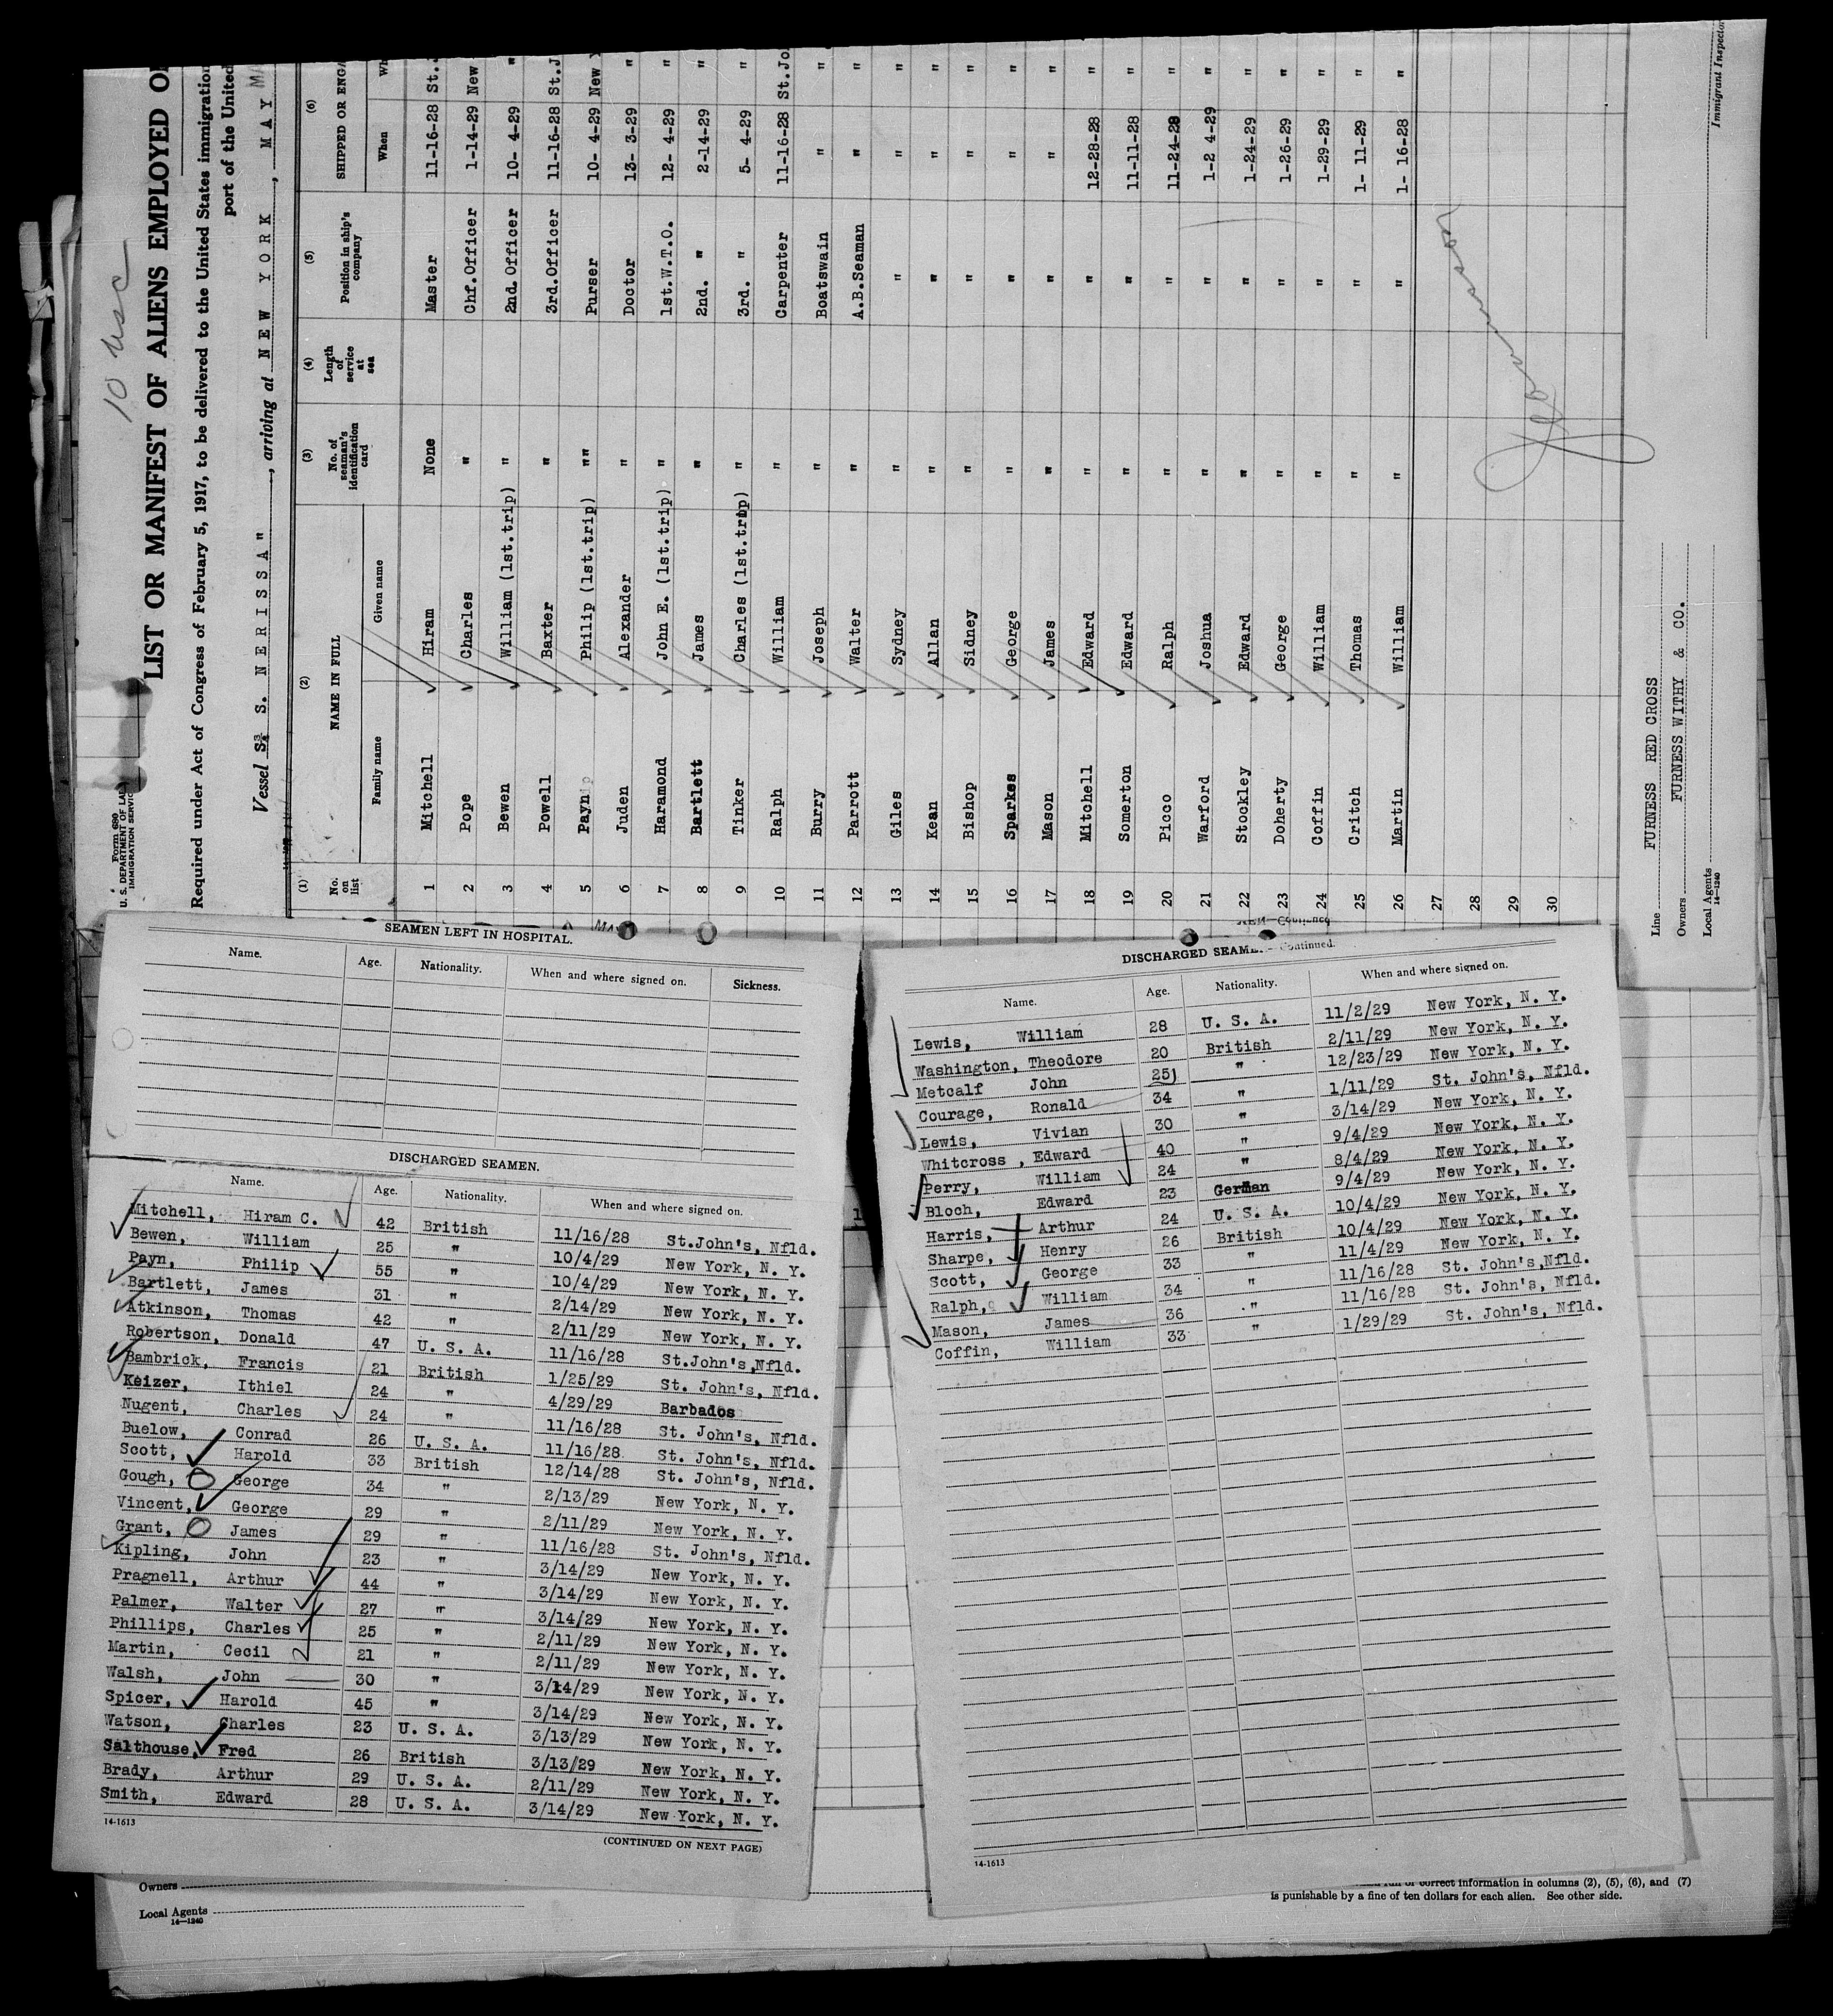 10 usc
Form 680
U. S. DEPARTMENT OF LA
IMMIGRATION SERVIC
LIST OR MANIFEST OF ALIENS EMPLOYED O
Required under Act of Congress of February 5, 1917, to be delivered to the United States immigration
port of the United
Vessel S. S. NERISSA" , arriving at NEW YORK , MAY
(1) (2) (3) (4) (5) (6)
No. on list NAME IN FULL No. of seaman's identification card Length of service at sea Position in ship's company SHIPPED OR ENGA
Family name Given name When Wh
1 Mitchell Hiram None Master 11-16-28 St.J
2 Pope Charles " Chf.Officer 1-14-29 New
3 Bewen William (1st.trip) " 2nd.Officer 10- 4-29 "
4 Powell Baxter " 3rd.Officer 11-16-28 St.J
5 Payn Philip (1st.trip) "" Purser 10- 4-29 New Y
6 Juden Alexander " Doctor 13- 3-29 "
7 Haramond John E. (1st.trip) " 1st.W.T.O. 12- 4-29 "
8 Bartlett James " 2nd. " 2-14-29 "
9 Tinker Charles (1st.trip) " 3rd. " 5- 4-29 "
10 Ralph William " Carpenter 11-16-28 St.Jo
11 Burry Joseph " Boatswain " "
12 Parrott Walter " A.B.Seaman " "
13 Giles Sydney " " " "
14 Kean Allan " " " "
15 Bishop Sidney " " " "
16 Sparkes George " " " "
17 Mason James " " " "
18 Mitchell Edward " " 12-28-28 "
19 Somerton Edward " " 11-11-28 "
20 Picco Ralph " " 11-24-28 "
21 Warford Joshua " " 1-2 4-29 "
22 Stockley Edward " " 1-24-29 "
23 Doherty George " " 1-26-29 "
24 Coffin William " " 1-29-29 "
25 Critch Thomas " " 1- 11-29 "
26 Martin William " " 1- 16-28 "
27
28
29
30
Line FURNESS RED CROSS
Owners FURNESS WITHY & CO.
Local Agents
14-1240
Immigrant Inspector
SEAMEN LEFT IN HOSPITAL.
Name. Age. Nationality. When and where signed on. Sickness.
DISCHARGED SEAMEN.
Name. Age. Nationality. When and where signed on.
Mitchell, Hiram C. 42 British 11/16/28 St.John's, Nfld.
Bewen, William 25 " 10/4/29 New York, N. Y.
Payn, Philip 55 " 10/4/29 New York, N. Y.
Bartlett, James 31 " 2/14/29 New York, N. Y.
Atkinson, Thomas 42 " 2/11/29 New York, N. Y.
Robertson, Donald 47 U. S. A. 11/16/28 St.John's,Nfld.
Bambrick, Francis 21 British 1/25/29 St. John's, Nfld.
Keizer, Ithiel 24 " 4/29/29 Barbados
Nugent, Charles 24 " 11/16/28 St. John's, Nfld.
Buelow, Conrad 26 U. S. A. 11/16/28 St. John's, Nfld.
Scott, Harold 33 British 12/14/28 St. John's, Nfld.
Gough, George 34 " 2/13/29 New York, N. Y.
Vincent, George 29 " 2/11/29 New York, N. Y.
Grant, James 29 " 11/16/28 St. John's, Nfld.
Kipling, John 23 " 3/14/29 New York, N. Y.
Pragnell, Arthur 44 " 3/14/29 New York, N. Y.
Palmer, Walter 27 " 3/14/29 New York, N. Y.
Phillips, Charles 25 " 2/11/29 New York, N. Y.
Martin, Cecil 21 " 2/11/29 New York, N. Y.
Walsh, John 30 " 3/14/29 New York, N. Y.
Spicer, Harold 45 " 3/14/29 New York, N. Y.
Watson, Charles 23 U. S. A. 3/13/29 New York, N. Y.
Salthouse, Fred 26 British 3/13/29 New York, N. Y.
Brady, Arthur 29 U. S. A. 2/11/29 New York, N. Y.
Smith, Edward 28 U. S. A. 3/14/29 New York, N. Y.
14-1613
(CONTINUED ON NEXT PAGE)
DISCHARGED SEAME Continued.
Name. Age. Nationality. When and where signed on.
Lewis, William 28 U. S. A. 11/2/29 New York, N. Y.
Washington, Theodore 20 British 2/11/29 New York, N. Y.
Metcalf John 25 " 12/23/29 New York, N. Y.
Courage, Ronald 34 " 1/11/29 St. John's, Nfld.
Lewis, Vivian 30 " 3/14/29 New York, N. Y.
Whitcross , Edward 40 " 9/4/29 New York, N. Y.
Perry, William 24 " 8/4/29 New York, N. Y.
Bloch, Edward 23 German 9/4/29 New York, N. Y.
Harris, Arthur 24 U. S. A. 10/4/29 New York, N. Y.
Sharpe, Henry 26 British 10/4/29 New York, N. Y.
Scott, George 33 " 11/4/29 New York, N. Y.
Ralph, William 34 " 11/16/28 St. John's,Nfld.
Mason, James 36 " 11/16/28 St. John's, Nfld.
Coffin, William 33 " 1/29/29 St. John's, Nfld.
14-1613
Owners
Local Agents
14-1240
correct information in columns (2), (5), (6), and (7)
is punishable by a fine of ten dollars for each alien. See other side.